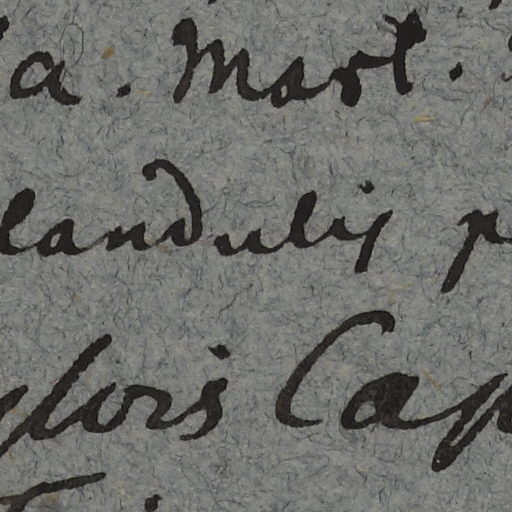 a. Mart.
landulis p
floris Cap